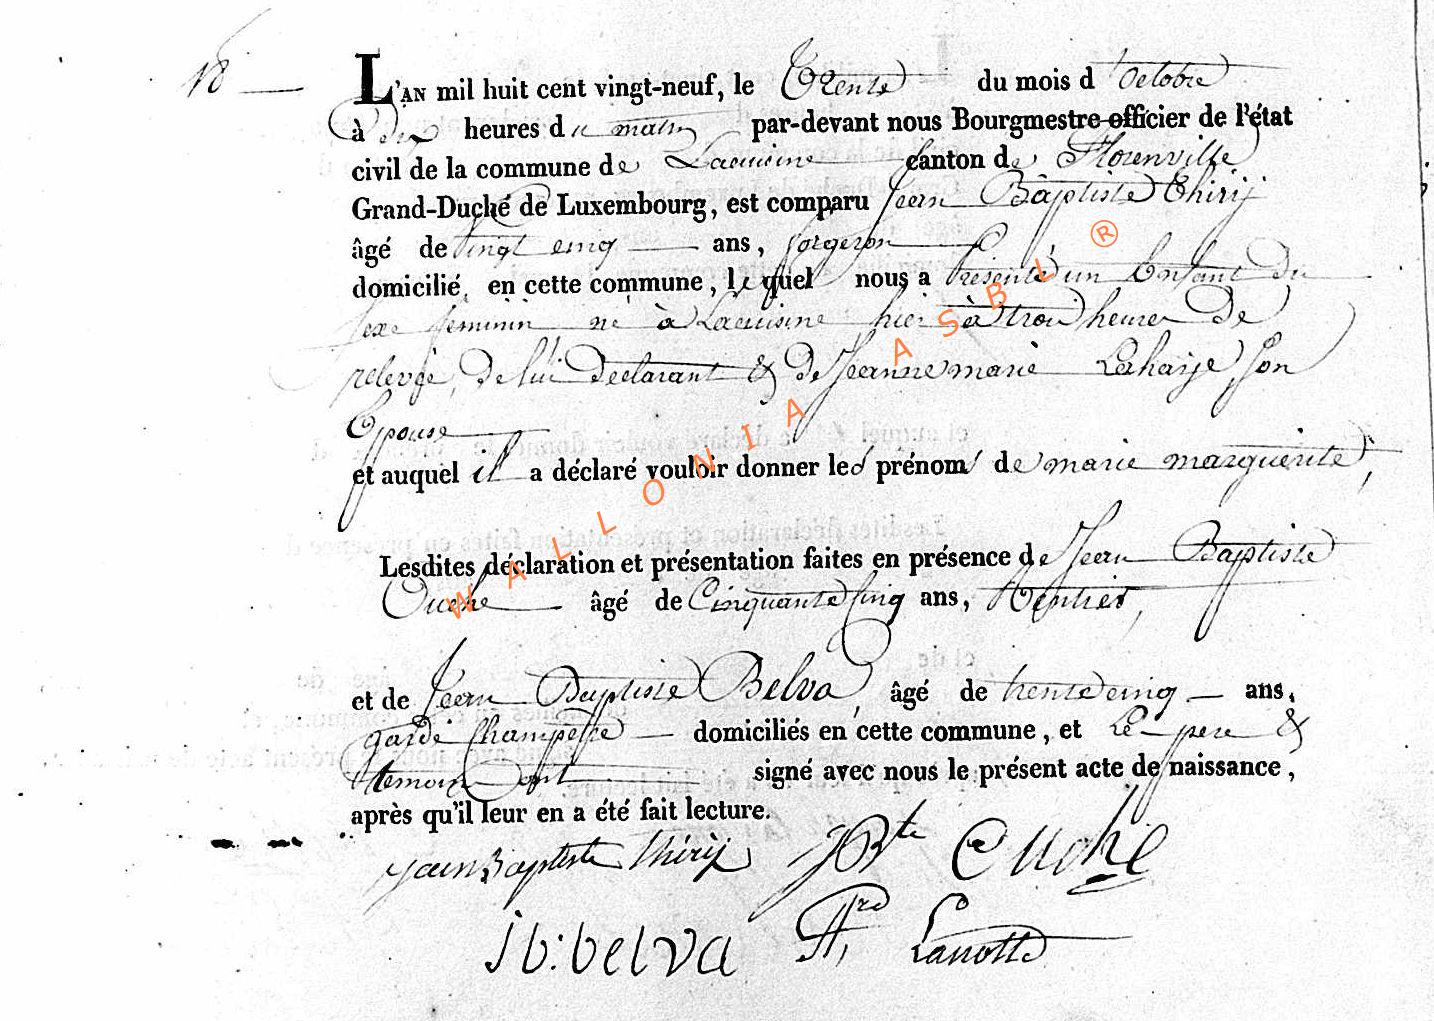 18
L'AN mil huit cent vingt-neuf, le Trente du mois d'octobre
à dix heures du matin par-devant nous Bourgmestre officier de l'état
civil de la commune de Lacuisine canton de Florenville
Grand-Duché de Luxembourg, est comparu Jean Baptiste Thirij
âgé de vingt cinq ans, forgeron
domicilié, en cette commune, lequel nous a présenté un Enfant du
sexe feminin né à Lacuisine hier à trois heures de
relevée, de lui declarant & de Jeanne marie Lahaije, son
Epouse
et auquel il a déclaré vouloir donner les prénoms de marie marguerite,
Lesdites déclaration et présentation faites en présence de Jean Baptiste
Ouche âgé de Cinquante Cinq ans, Rentier,
et de Jean Baptiste Belva, âgé de trente cinq ans,
garde Champetre domiciliés en cette commune, et Le pere &
temoins ont signé avec nous le présent acte de naissance,
après qu'il leur en a été fait lecture.
Jean Baptiste Thirij JBte Ouche
j b: belva Lanotte
WALLONIA ASBL ®